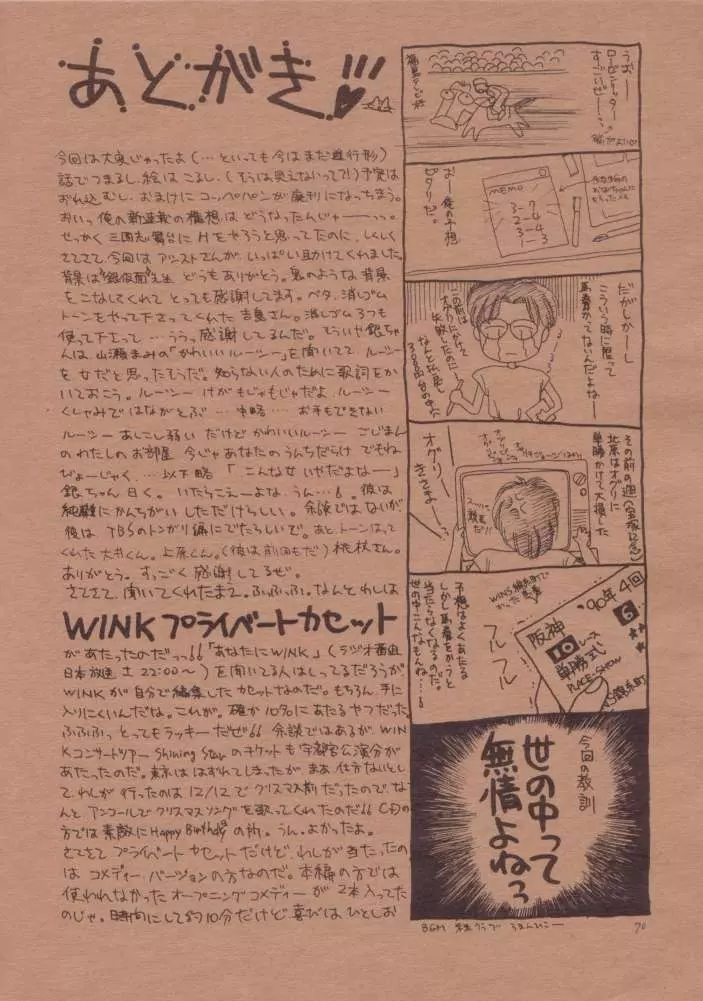 あとがき!!!
今回は大変じゃったよ(…といっても今はまだ進行形)
話でつまるし、絵はこるし、(そうは見えないって?!)予定は
おれ込むし、おまけにコッペパンが廃刊になっちまう。
おいっ俺の新連載の構想はどうなったんじゃーーっ。
せっかく三国志舞台にHをやろうと思ってたのに、しくしく
さてさて、今回はアシストさんが、いっぱい助けてくれました。
背景は"銀仮面"先生 どうもありがとう。鬼のような背景
をこなしてくれて とっても感謝してます。ベタ、消しゴム
トーンをやって下さってくれた吉島さん。消しゴム3つも
使って下さって…ううっ感謝してるんだ。そういや銀ちゃ
んは、山瀬まみの「かわいいルーシー」を聞いてて ルーシー
を女だと思ったそうだ。知らない人のために歌詞をか
いておこう。ルーシー けがもじゃもじゃだよ ルーシー
くしゃみではながとぶ …中略… お手もできない
ルーシー あしこし弱い だけどかわいいルーシー ごじまん
のわたしのお部屋 今じゃあなたのうんちだらけ でもね
びょーじゃく、…以下略「こんな女いやだよなー」
銀ちゃん曰く。いたらこえーよな、うん…。彼は
純粋にかんちがいしただけらしい。余談ではないが
彼は TBSのトンガリ編にでたらしいで。あと、トーンはって
くれた大井くん。上原くん。(彼は前回もだ)桃杖さん。
ありがとう。すっごく感謝してるぜ。
さてさて、聞いてくれたまえ。ふふふふ。なんとわしは
WINKプライベートカセット
があたったのだっっ「あなたにWINK」(ラジオ番組
日本放送 土22:00〜)を聞いてる人はしってるだろうが
WINKが自分で編集したカセットなのだ。もちろん、手に
入りにくいんだな。これが。確か10名にあたるやつだった
ふふふふっ とってもラッキーだぜ 余談ではあるが WIN
Kコンサートツアー Shining Starのチケットも宇都宮公演分が
あたったのだ。東京ははずれてしまったが、まあ仕方ないとし
て、わしが行ったのは12/12でクリスマス前だったので、な
んとアンコールでクリスマスソングを歌ってくれたのだ
方では素敵にHappy Birthdayの所。うん、よかったよ。
さてさてプライベートカセットだけど、わしが当たったの
はコメディーバージョンの方なのだ。本編の方では
使われなかったオープニングコメディーが2本入ってた
のじゃ。時間にして約10分だけど喜びはひとしお
うおーー
ロージーナッター
すごいぜーー…
福島テレビ杯
おー俺の予想
ピタリだ。
MEMO
3-7
2-4
4-4
1-3
だがしかーーし
こういう時に限って
馬券かってないんだよなー
この前は
オグリにかけて
失敗したのに
なんと払戻し
3000円台の中に
その前の週(宝塚記念)
北京はオグリに
単勝かけて大損した
オグリー
きさまー
予想はよくあたる
しかし馬券をかうと
当たらなくなるのだ。
世の中こんなもんね…
WINS錦糸町で
かった馬券
フルフル
'90年4回
阪神
6
10レース
単勝式
PLACE-SHOW
WINS錦糸町
今回の教訓
世の中って
無情よねっ
70